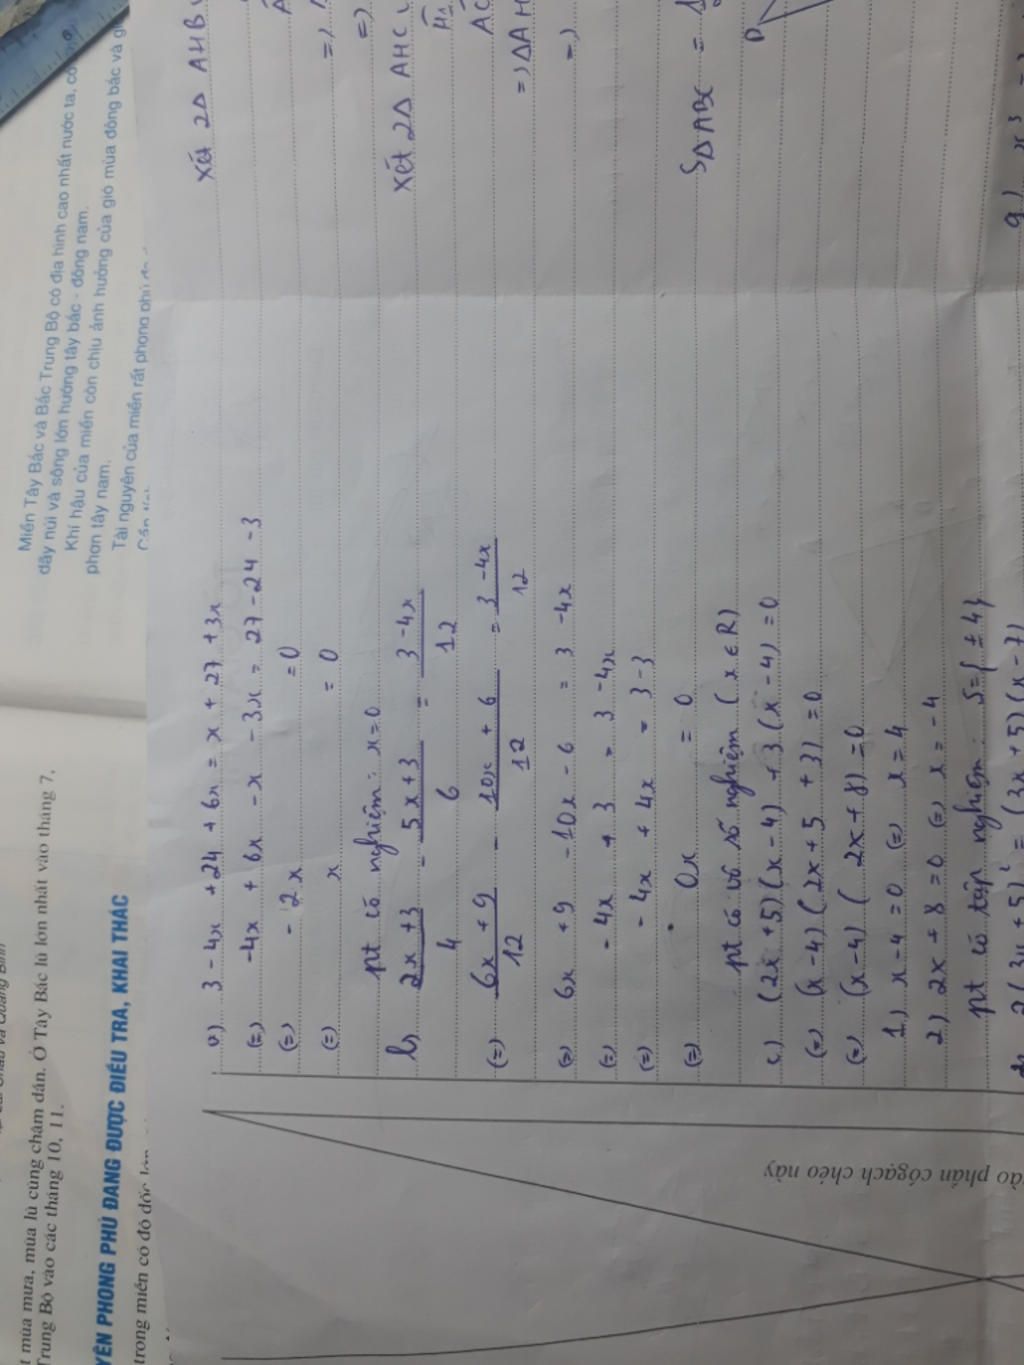 t mùa mưa, mùa lũ cũng chậm dần. Ở Tây Bắc lũ lớn nhất vào tháng 7,
Trung Bộ vào các tháng 10, 11.
YÊN PHONG PHÚ ĐANG ĐƯỢC ĐIỀU TRA, KHAI THÁC
trong miền có độ dốc lớn
Miền Tây Bắc và Bắc Trung Bộ có địa hình cao nhất nước ta, có
dãy núi và sông lớn hướng tây bắc - đông nam.
Khí hậu của miền còn chịu ảnh hưởng của gió mùa đông bắc và g
phơn tây nam.
Tài nguyên của miền rất phong phú đa
a) 3 - 4x + 24 + 6x = x + 27 + 3x
(=) -4x + 6x - x - 3x = 27 - 24 - 3
(=) - 2x = 0
(=) x = 0
pt có nghiệm: x=0
b) 2x+3/4 - 5x+3/6 = 3-4x/12
(=) 6x+9/12 - 10x+6/12 = 3-4x/12
(=) 6x + 9 - 10x - 6 = 3 - 4x
(=) - 4x + 3 = 3 - 4x
(=) - 4x + 4x = 3 - 3
(=) 0x = 0
pt có vô số nghiệm (x ∈ R)
c) (2x+5)(x-4) + 3(x-4) = 0
(=) (x-4)(2x+5 + 3) = 0
(=) (x-4)(2x+8) = 0
1.) x-4=0 (=) x=4
2) 2x+8=0 (=) x=-4
pt có tập nghiệm: S={±4}
Xét 2Δ AHB
Xét 2Δ AHC
=) ΔAH
=)
SΔABC = 1
D
9.) x³ =
ào phần có gạch chéo này